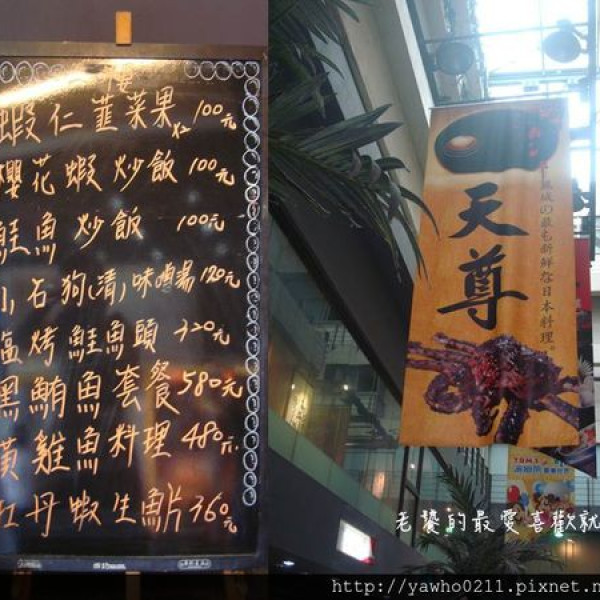 蝦仁韮菜果 x2 100元
櫻花蝦炒飯 100元
鮭魚炒飯 100元
石狗(清)味噌湯 120元
塩烤鮭魚頭 320元
黑鮪魚套餐 580元
黃雞魚料理 480元
牡丹蝦生魚片 360元
天尊
城の最も新鮮な日本料理。
老饕的最愛喜歡就
http://yawho0211.pixnet.n